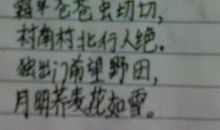 霜草苍苍虫切切，
村南村北行人绝。
独出门前望野田，
月明荞麦花如雪。